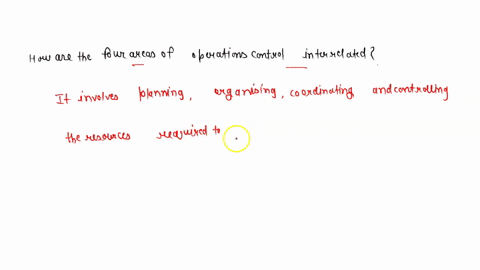 How are the four areas of operations control interrelated?
It involves planning, organising, coordinating and controlling
the resources required to